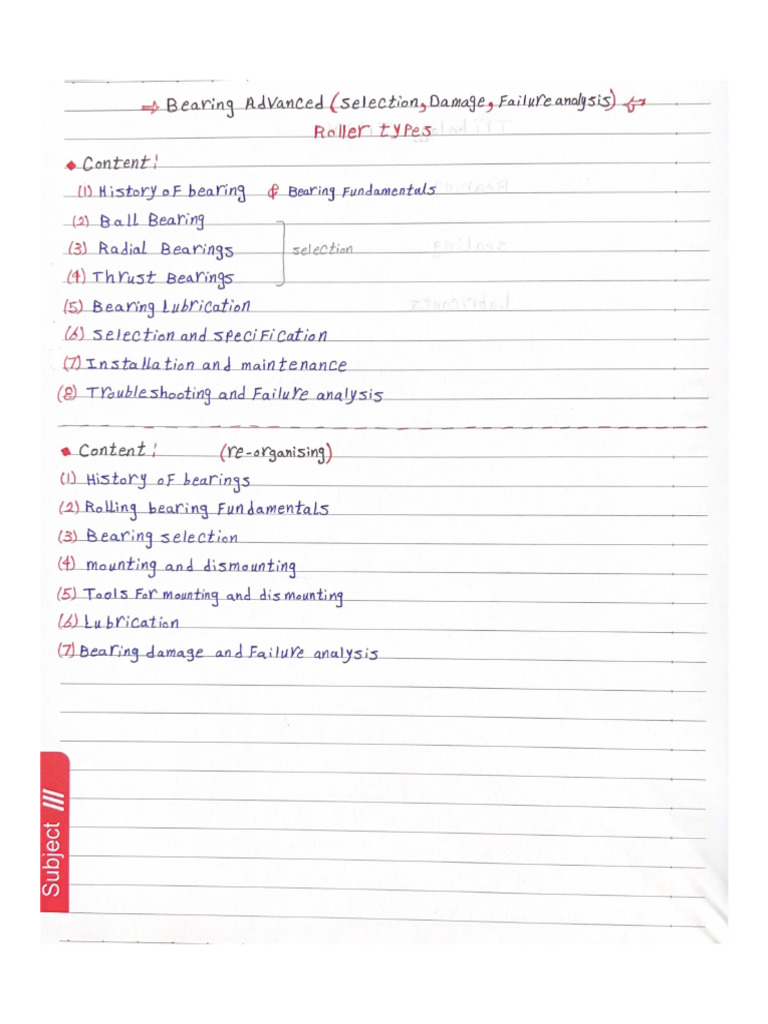 ⇒ Bearing Advanced (selection, Damage, Failure analysis) ⇐
Roller types
• Content:
(1) History of bearing & Bearing Fundamentals
(2) Ball Bearing
(3) Radial Bearings selection
(4) Thrust Bearings
(5) Bearing Lubrication
(6) selection and specification
(7) Installation and maintenance
(8) Troubleshooting and Failure analysis
• Content: (re-organising)
(1) History of bearings
(2) Rolling bearing Fundamentals
(3) Bearing selection
(4) mounting and dismounting
(5) Tools For mounting and dismounting
(6) Lubrication
(7) Bearing damage and Failure analysis
Subject ///